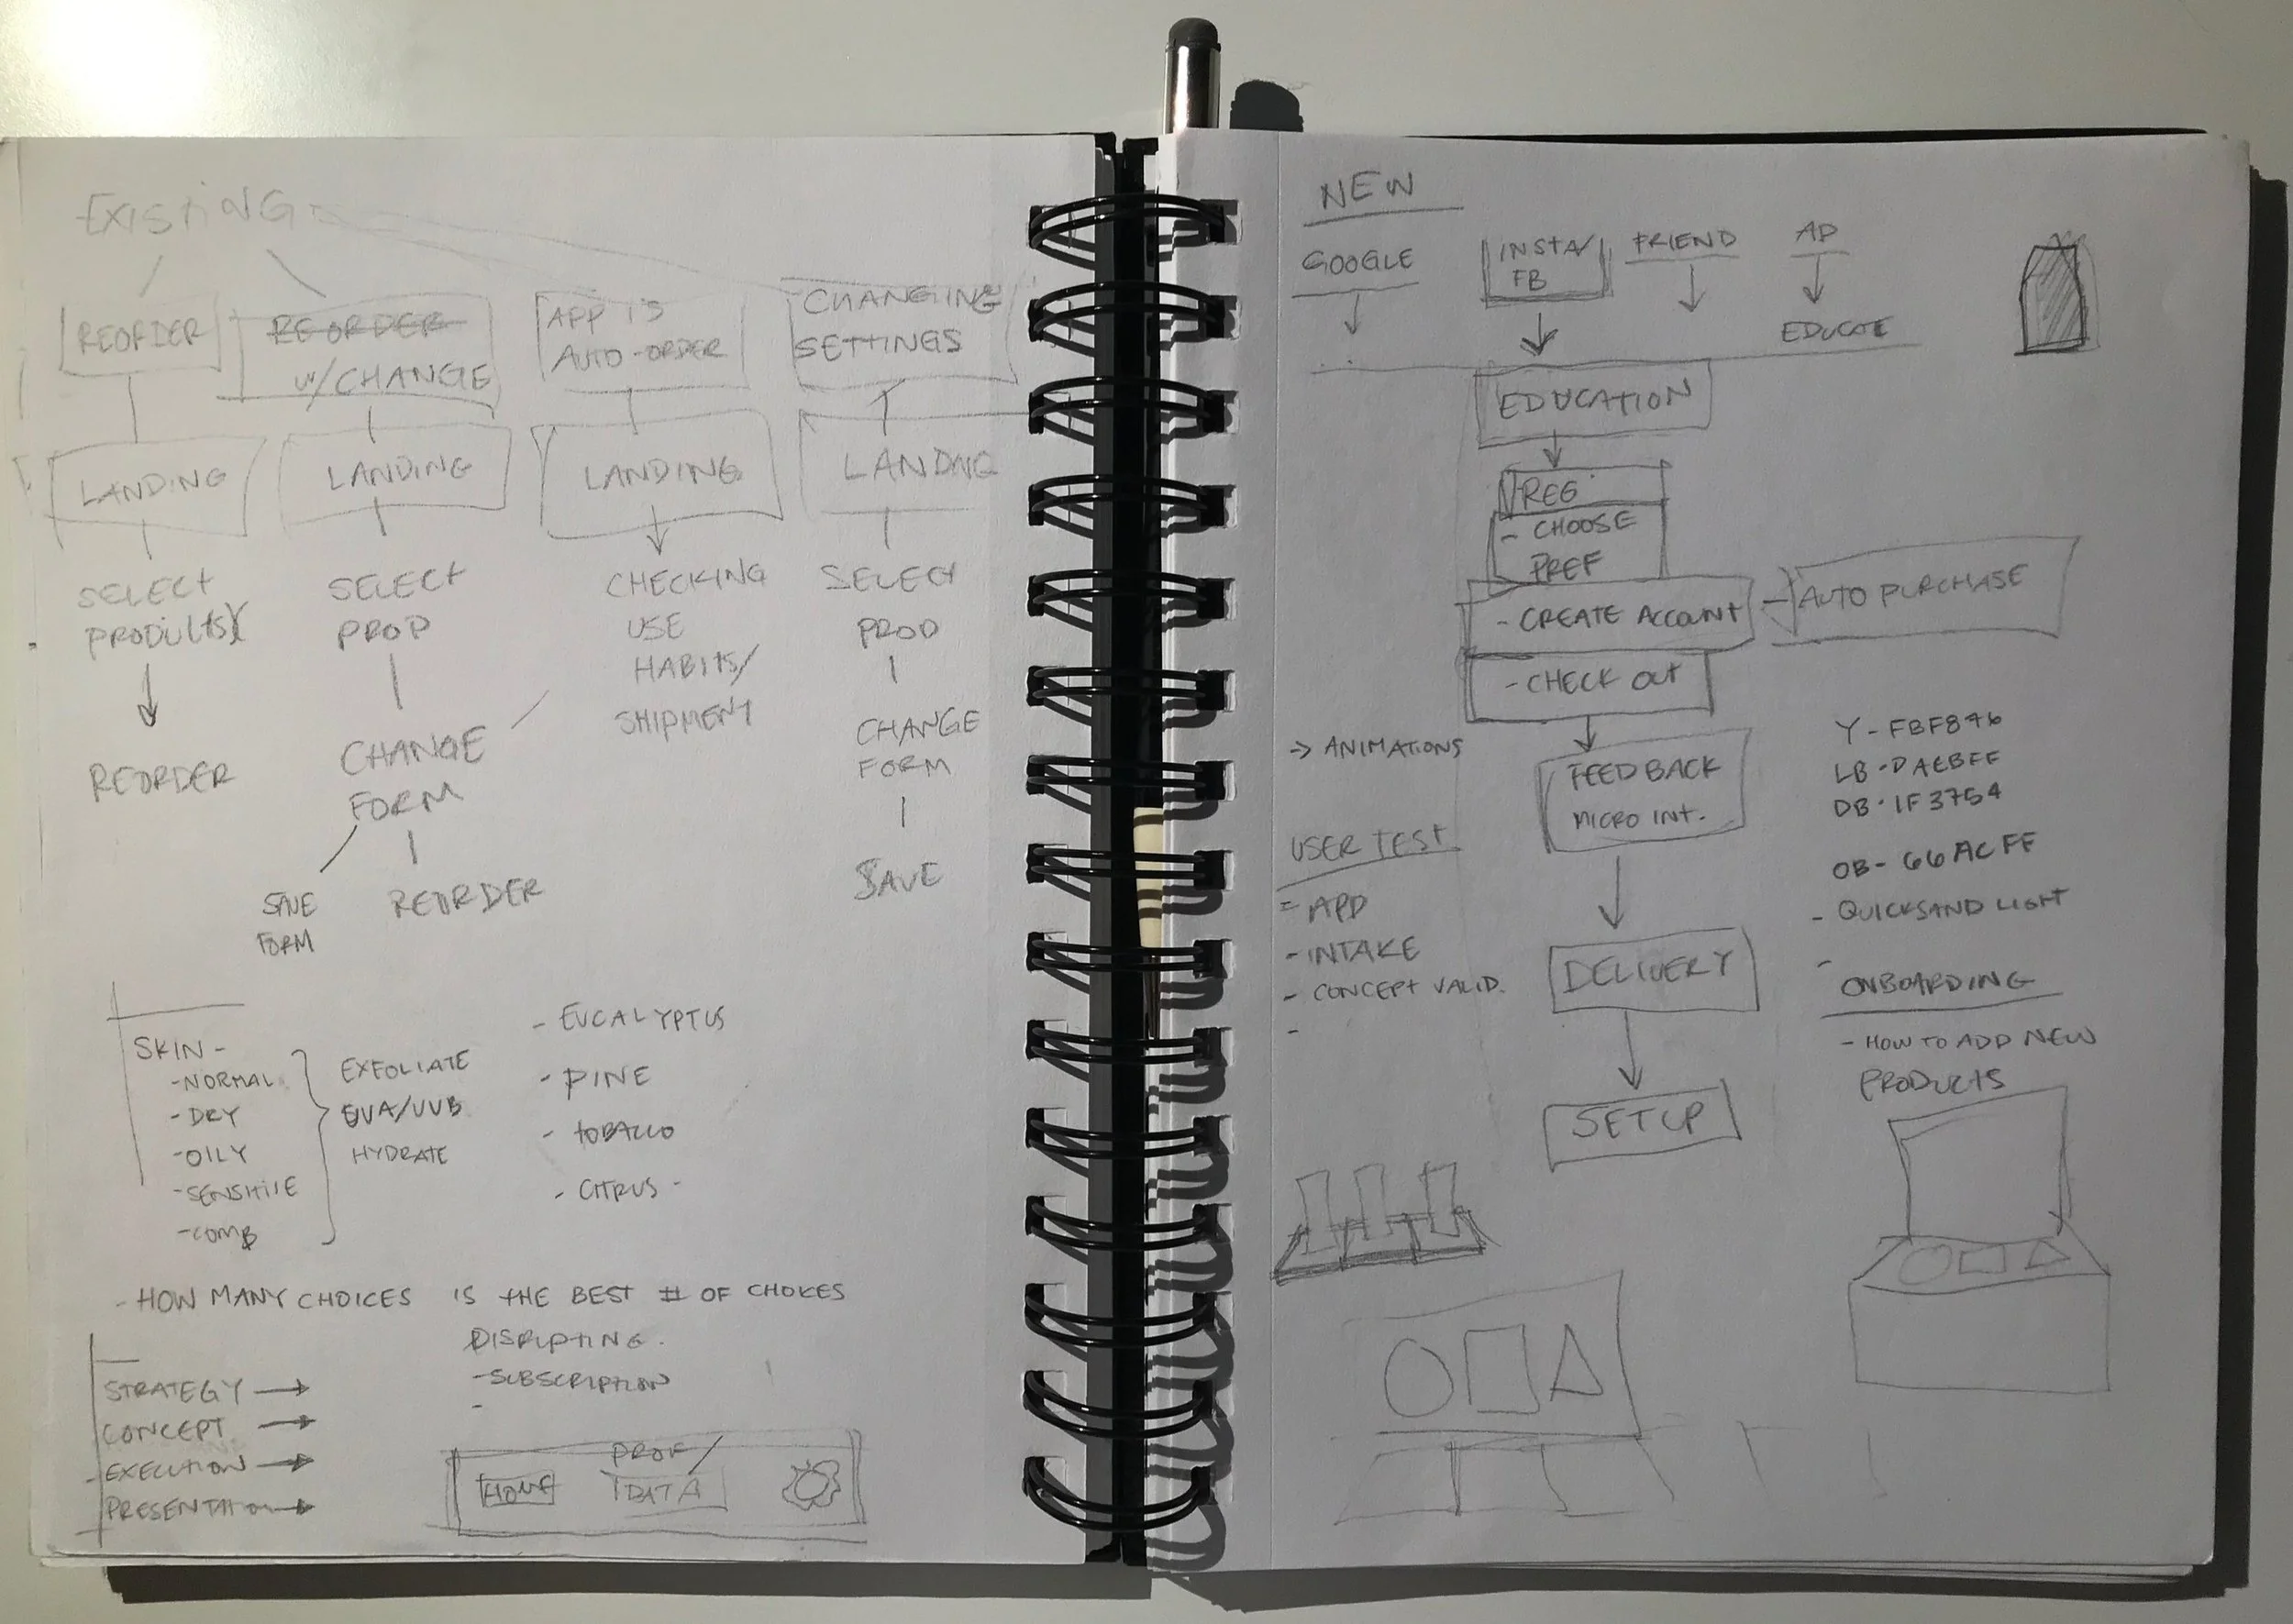 EXISTING
REORDER
REORDER
W/CHANGE
APP IS
AUTO-ORDER
CHANGING
SETTINGS
LANDING
LANDING
LANDING
LANDING
SELECT
PRODUCTS
REORDER
SELECT
PROD
CHANGE
FORM
SAVE
FORM
REORDER
CHECKING
USE
HABITS/
SHIPMENT
SELECT
PROD
CHANGE
FORM
SAVE
SKIN-
-NORMAL
-DRY
-OILY
-SENSITIVE
-COMB
EXFOLIATE
UVA/UVB
HYDRATE
- EUCALYPTUS
- PINE
- TOBACCO
- CITRUS -
- HOW MANY CHOICES IS THE BEST # OF CHOICES
DISRUPTING.
-SUBSCRIPTION
-
STRATEGY →
CONCEPT →
EXECUTION →
PRESENTATION →
HOME
PROF/
DATA
NEW
GOOGLE
INSTA/
FB
FRIEND
AD
EDUCATE
EDUCATION
REG
- CHOOSE
PREF
- CREATE ACCOUNT
AUTO PURCHASE
- CHECK OUT
FEEDBACK
MICRO INT.
DELIVERY
SETUP
→ ANIMATIONS
USER TEST
- APP
- INTAKE
- CONCEPT VALID.
-
Y-FBF876
LB-DAEBFF
DB-1F3754
OB-66ACFF
- QUICKSAND LIGHT
-
ONBOARDING
- HOW TO ADD NEW
PRODUCTS